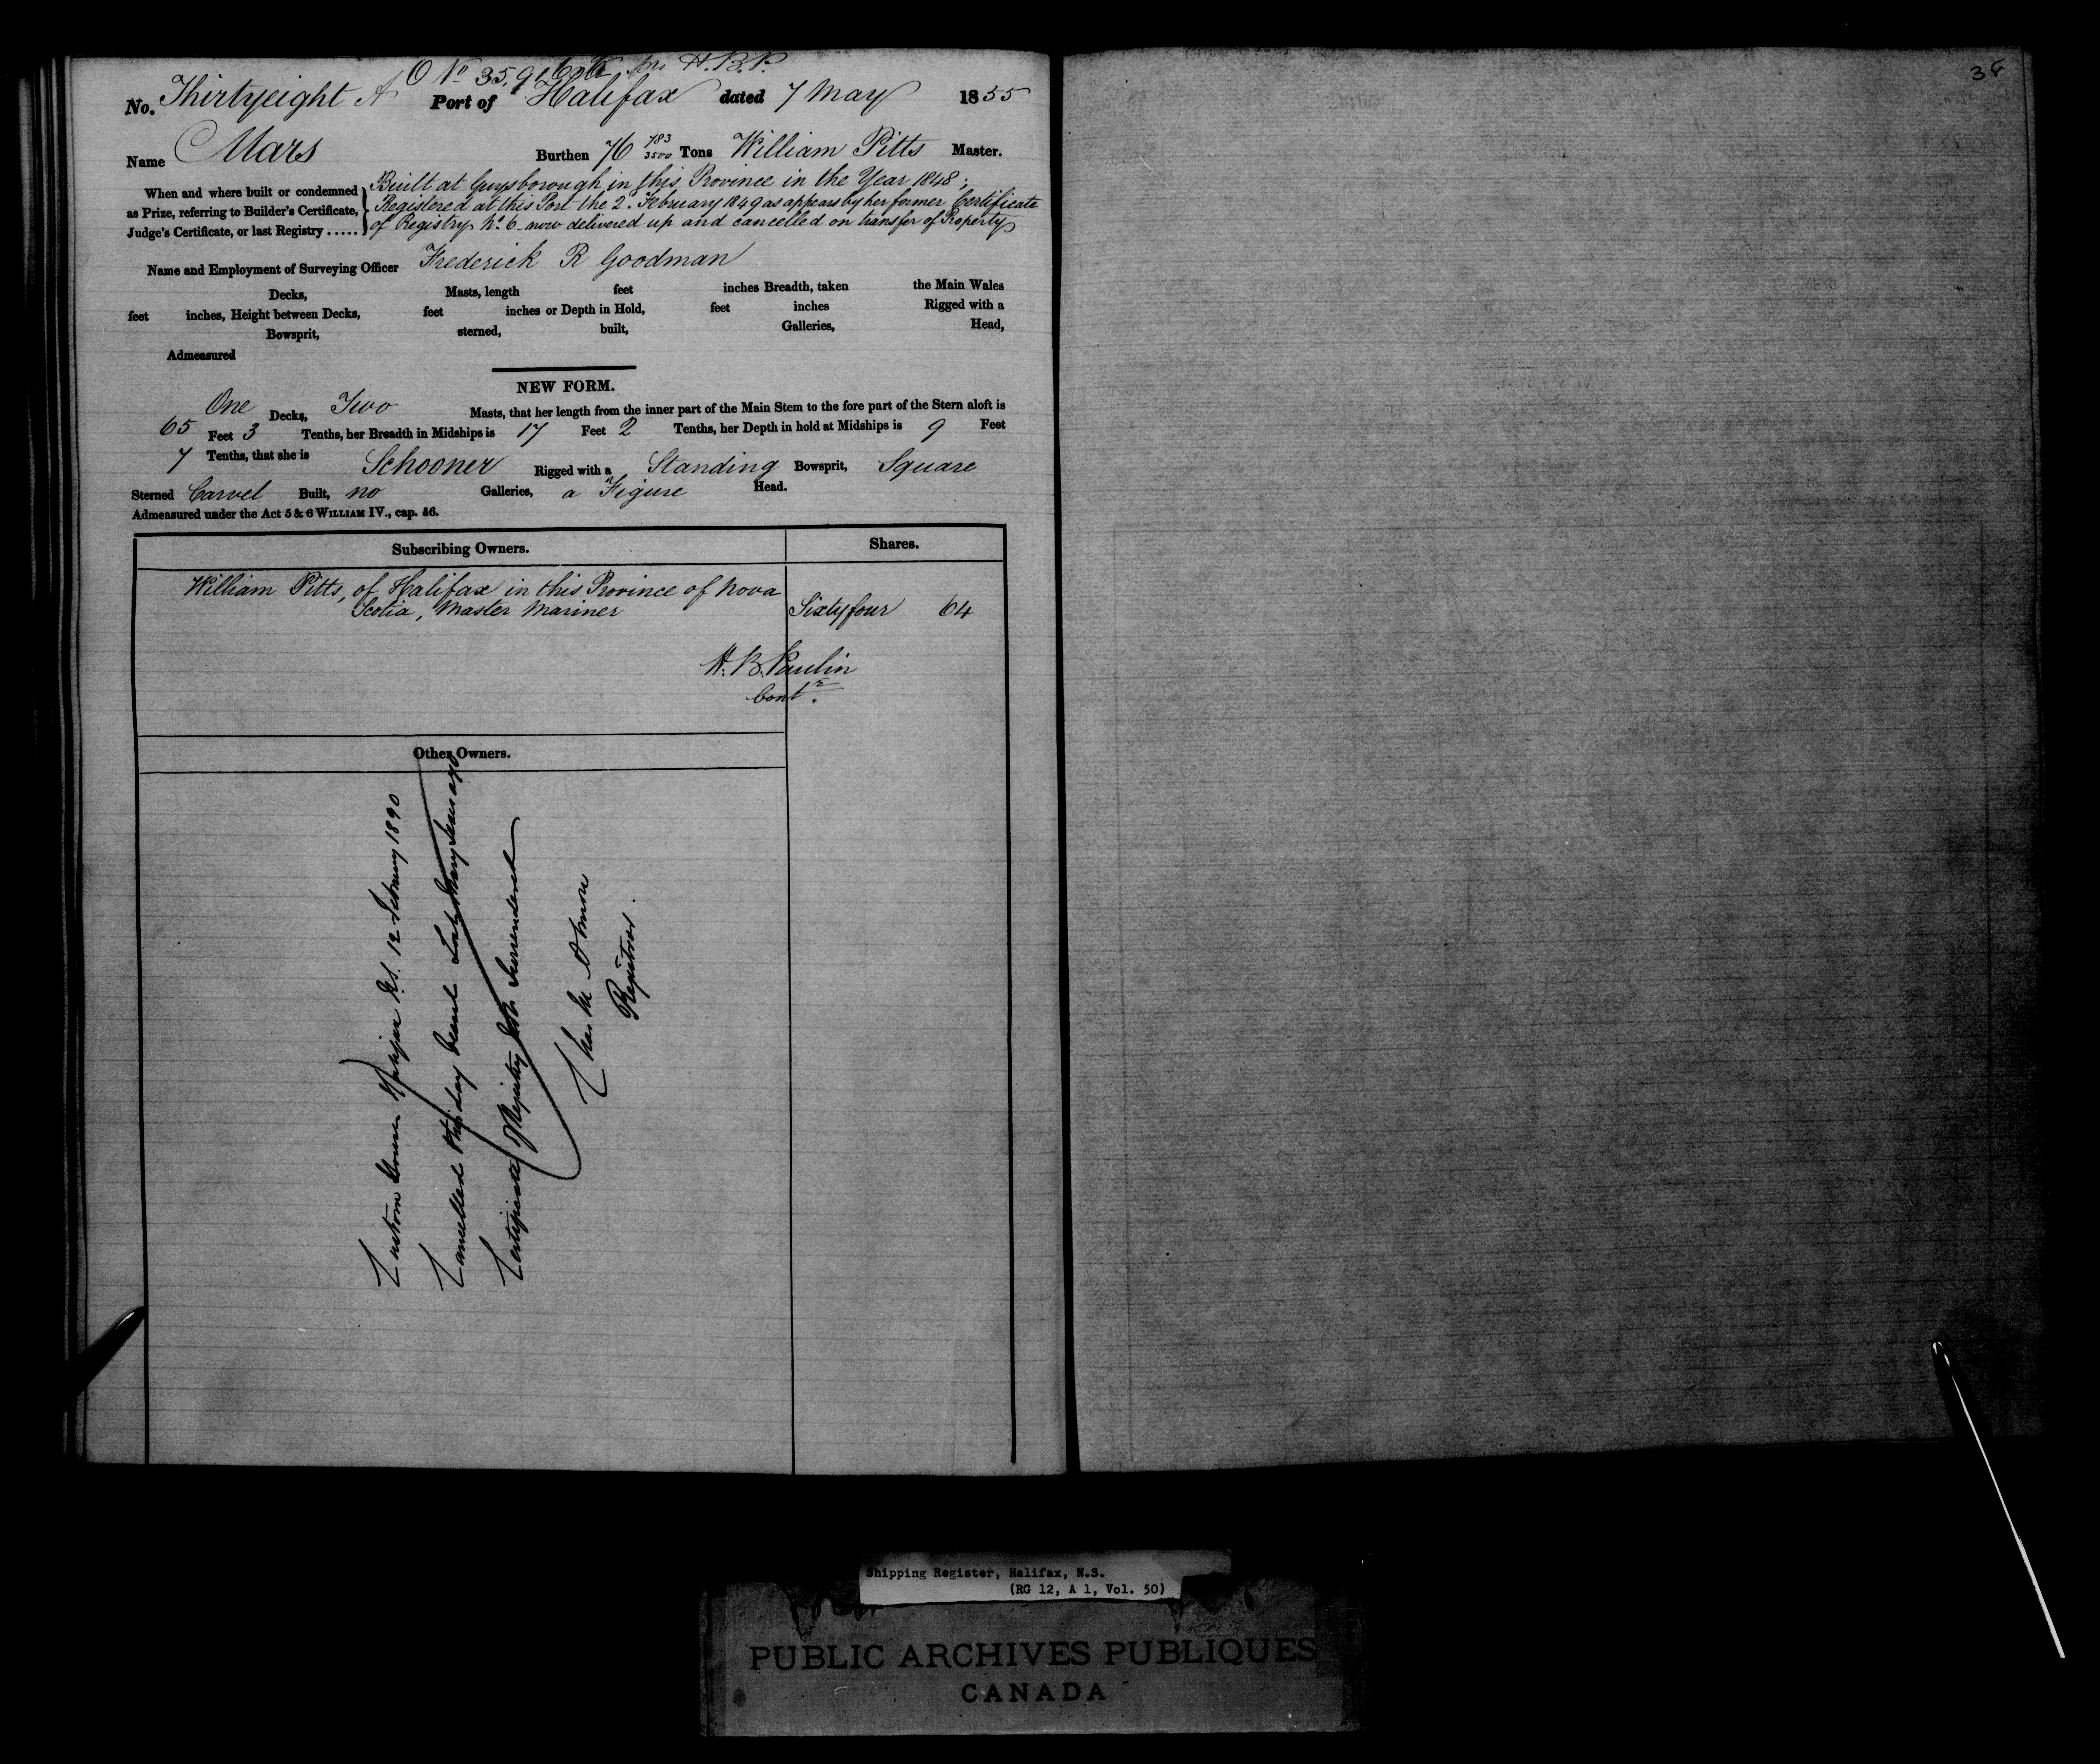 O No 35,9 H.B.P.
No. Thirtyeight A Port of Halifax dated 7 May 1855
Name Mars Burthen 76 783/3500 Tons William Pitts Master.
When and where built or condemned as Prize, referring to Builder's Certificate, Judge's Certificate, or last Registry .....
Built at Guysborough in this Province in the Year 1848;
Registered at this Port the 2d February 1849 as appears by her former Certificate
of Registry No. 6 now delivered up and cancelled on transfer of Property
Name and Employment of Surveying Officer Frederick R Goodman
Decks, Masts, length feet inches Breadth, taken the Main Wales
feet inches, Height between Decks, feet inches or Depth in Hold, feet inches Rigged with a
Bowsprit, sterned, built, Galleries, Head,
Admeasured
NEW FORM.
One Decks, Two Masts, that her length from the inner part of the Main Stem to the fore part of the Stern aloft is
65 Feet 3 Tenths, her Breadth in Midships is 17 Feet 2 Tenths, her Depth in hold at Midships is 9 Feet
7 Tenths, that she is Schooner Rigged with a Standing Bowsprit, Square
Sterned Carvel Built, no Galleries, a Figure Head.
Admeasured under the Act 5 & 6 WILLIAM IV., cap. 56.
Subscribing Owners. Shares.
William Pitts, of Halifax in this Province of Nova
Scotia, Master Mariner Sixtyfour 64
H. B. Paulin
Contr.
Other Owners.
Custom House Halifax N.S. 12 February 1890
Cancelled this day Vessel Lost Many Years ago
Certificate of Registry not Surrendered
Registrar.
38
Shipping Register, Halifax, N.S.
(RG 12, A 1, Vol. 50)
PUBLIC ARCHIVES PUBLIQUES
CANADA